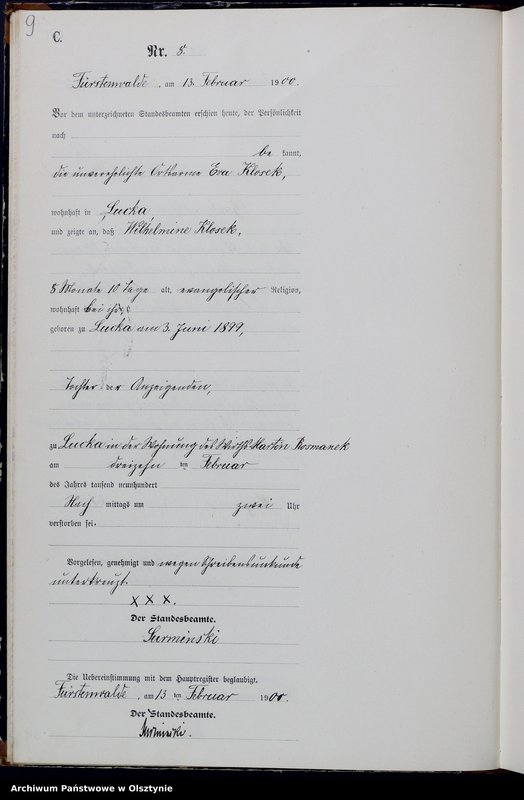 9
C.
Nr. 8.
Fürstenwalde, am 13. Februar 1900.
Vor dem unterzeichneten Standesbeamten erschien heute, der Persönlichkeit
nach
be kannt,
die unverehelichte Ortsarme Eva Klosek,
wohnhaft in Lucka,
und zeigte an, daß Wilhelmine Klosek,
8 Monate 10 Tage alt, evangelischer Religion,
wohnhaft bei ihr,
geboren zu Lucka am 3. Juni 1899,
Tochter der Anzeigenden,
zu Lucka in der Wohnung des Wirths Martin Rosmanek
am dreizehn ten Februar
des Jahres tausend neunhundert
Nach mittags um zwei Uhr
verstorben sei.
Vorgelesen, genehmigt und wegen Schreibensunkunde
unterkreuzt.
X X X.
Der Standesbeamte.
Surminski
Die Uebereinstimmung mit dem Hauptregister beglaubigt.
Fürstenwalde, am 13 ten Februar 1900.
Der Standesbeamte.
Surminski.
Archiwum Państwowe w Olsztynie